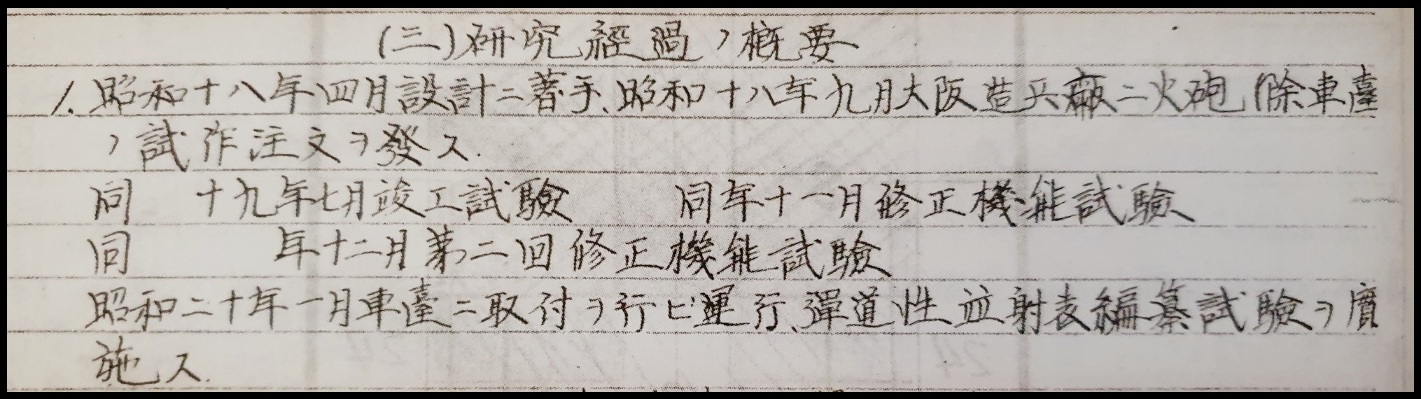 (三)研究経過ノ概要
1.昭和十八年四月設計ニ著手、昭和十八年九月大阪造兵廠ニ火砲(除車臺
ノ試作注文ヲ發ス.
同 十九年七月竣工試験 同年十一月修正機能試験
同 年十二月第二回修正機能試験
昭和二十年一月車臺ニ取付ヲ行ヒ運行、彈道性並射表編纂試験ヲ實
施ス.